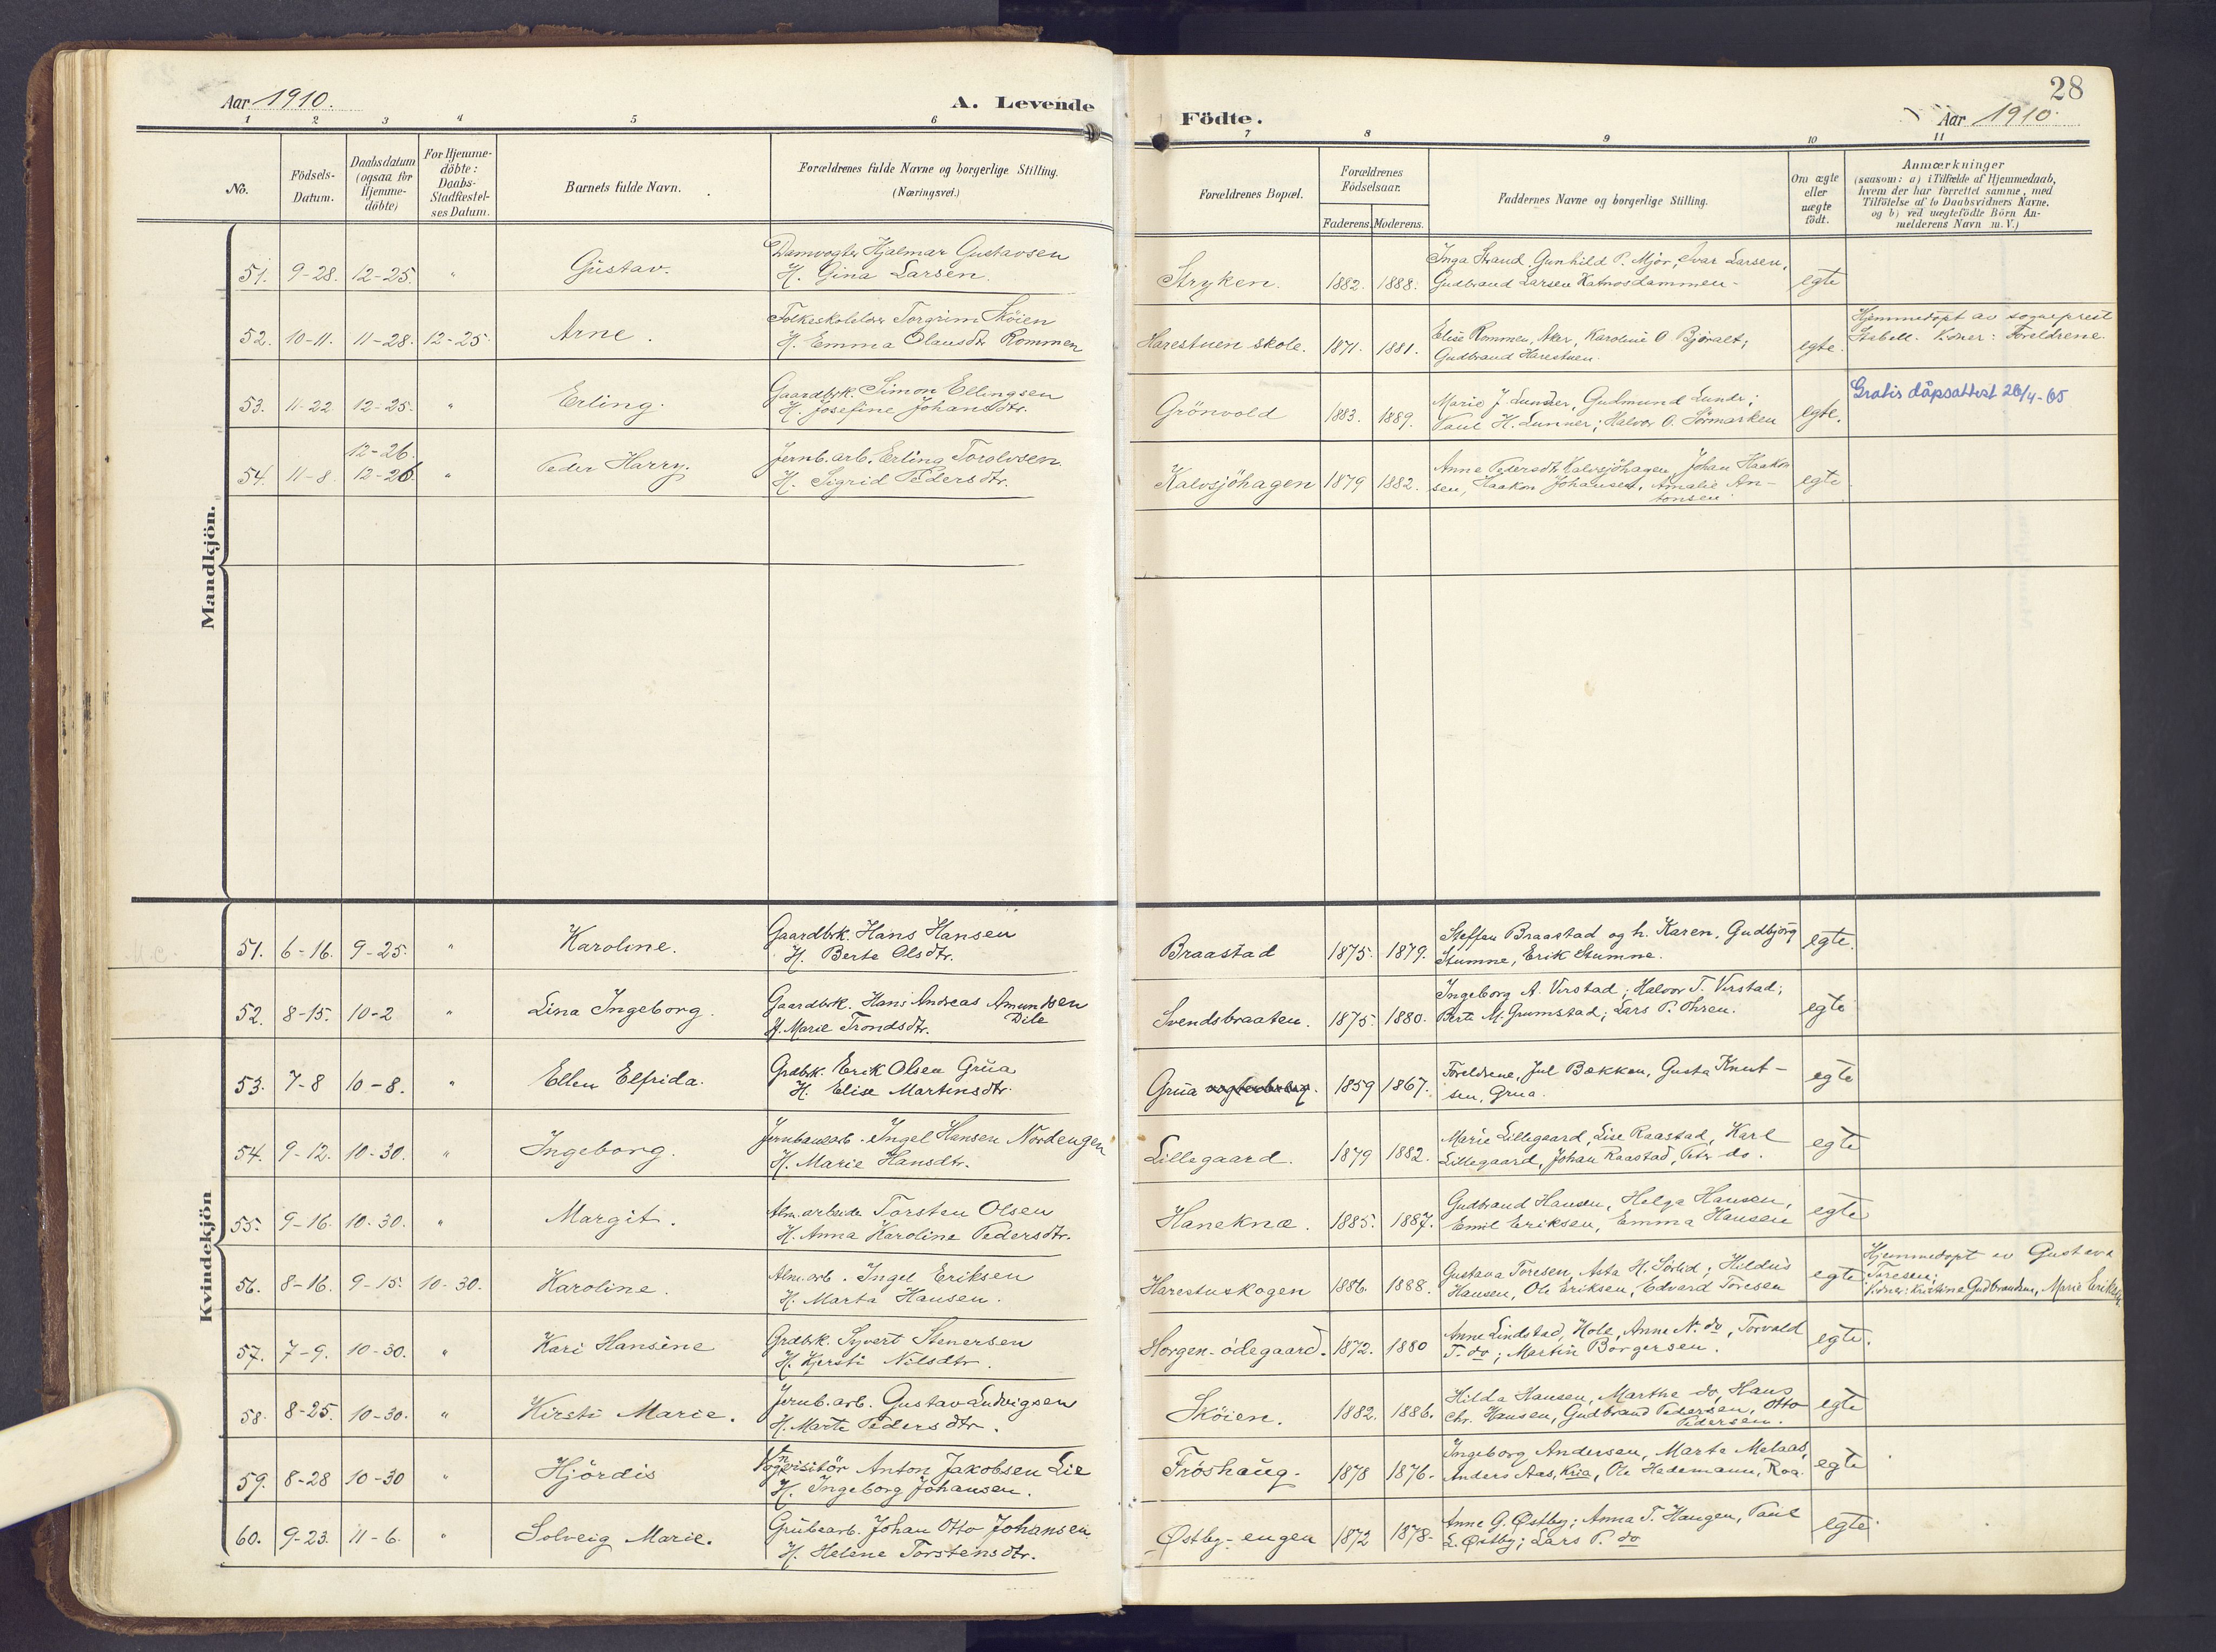 28
Aar 1910.
A. Levende Födte.
Aar 1910.
1 2 3 4 5 6 7 8 9 10 11
No.
Födsels-Datum.
Daabsdatum (ogsaa för Hjemme-döbte)
For Hjemme-döbte: Daabs-Stadfæstel-ses Datum.
Barnets fulde Navn.
Forældrenes fulde Navne og borgerlige Stilling.
(Næringsvei.)
Forældrenes Bopæl.
Forældrenes Födselsaar.
Faderens. Moderens.
Faddernes Navne og borgerlige Stilling.
Om ægte eller uægte födt.
Anmærkninger
(saasom: a) i Tilfælde af Hjemmedaab, hvem der har forrettet samme, med Tilföielse af to Daabsvidners Navne, og b) ved uægtefödte Börn An-melderens Navn m.V.)
Mandkjön.
51. 9-28. 12-25. " Gustav. Damvogter Hjalmar Gustavsen
H. Gina Larsen. Stryken. 1882. 1888. Inga Strand, Gunhild P. Mjör, Ivar Larsen,
Gudbrand Larsen Katnosdammen- egte
52. 10-11. 11-28. 12-25. Arne. Folkeskolelærer Torgrim Sköien
H. Emma Olausdtr Rommen Harestuen skole. 1871. 1881. Elise Rommen, Aker, Karoline O. Björalt;
Gudbrand Harestuen. egte. Hjemmedöpt av sogneprest
Stabell. Vidner: Foreldrene.
53. 11-22 12-25. " Erling. Gaardbrk. Simon Ellingsen
H. Josefine Johansdtr. Grönvold 1883. 1889. Marie J. Lunder, Gudmund Lunde;
Paul H. Lunner; Halvor O. Sörmarken egte. Gratis dåpsattest 26/4-65
12-26.
54. 11-8. 12-26. " Peder Harry. Jernb.arb. Erling Torolvsen
H. Sigrid Pedersdtr. Kalvsjöhagen 1879 1882. Anne Pedersdtr Kalvsjöhagen, Johan Haakon
sen, Haakon Johansen, Amalie An-
tonsen. egte
Kvindekjön
51. 6-16. 9-25. " Karoline. Gaardbrk. Hans Hansen
H. Berte Olsdtr. Braastad 1875. 1879. Steffen Braastad og h. Karen, Gudbjörg
Stumne, Erik Stumne. egte.
52. 8-15. 10-2 " Lina Ingeborg. Gaardbrk. Hans Andreas Amundsen
H. Marie Trondsdtr. Svendsbraaten. 1875. 1880. Ingeborg A. Virstad; Halvor T. Virstad;
Berte M. Grumstad; Lars P. Ohren. egte
53. 7-8 10-8. " Ellen Elfrida. Grdbrk. Erik Olsen Grua
H. Elise Martinsdtr. Grua 1859 1867. Foreldrene, Jul Bækken, Gusta Knut-
sen, Grua. egte
54. 9-12. 10-30. " Ingeborg. Jernbanearb. Ingel Hansen Nordengen
H. Marie Hansdtr. Lillegaard. 1879 1882. Marie Lillegaard, Lise Raastad, Karl
Lillegaard, Johan Raastad, Peter do. egte
55. 9-16. 10-30. " Margit. Alm.arbeider Torsten Olsen
H. Anna Karoline Pedersdtr. Haneknæ. 1885. 1887. Gudbrand Hansen, Helga Hansen,
Emil Eriksen, Emma Hansen egte
56. 8-16. 9-15. 10-30. Karoline. Alm.arb. Ingel Eriksen
H. Marta Hansen. Harestuskogen 1886. 1888. Gustava Toresen, Asta H. Sörlid; Hildus
Hansen, Ole Eriksen, Edvard Toresen egte Hjemmedöpt av Gustava
Toresen;
Vidner: Kristine Gudbrandsen, Marie Eriksen
57. 7-9. 10-30. " Kari Hansine Grdbrk. Syvert Stenersen
H. Kjersti Nilsdtr. Horgen-ödegaard. 1872. 1880 Anne Lindstad, Hole, Anne N. do, Torvald
T. do; Martin Borgersen. egte.
58. 8-25. 10-30. " Kirsti Marie. Jernb.arb. Gustav Ludvigsen
H. Marte Pedersdtr. Sköien. 1882. 1886. Hilda Hansen, Marthe do, Hans
Chr. Hansen, Gudbrand Pedersen, Otto
Pedersen. egte
59. 8-28 10-30 " Hjördis Vognvisitör Anton Jakobsen Lie
H. Ingeborg Johansen. Fröshaug. 1878 1876. Ingeborg Andersen, Marta Melaas,
Anders Aas, Kria, Ole Hedemann, Roa. egte
60. 9-23. 11-6. " Solveig Marie. Grubearb. Johan Otto Johansen
H. Helene Torstensdtr. Østby-engen 1872 1878. Anne G. Østby; Anna T. Haugen, Paul
L. Østby; Lars P. do egte